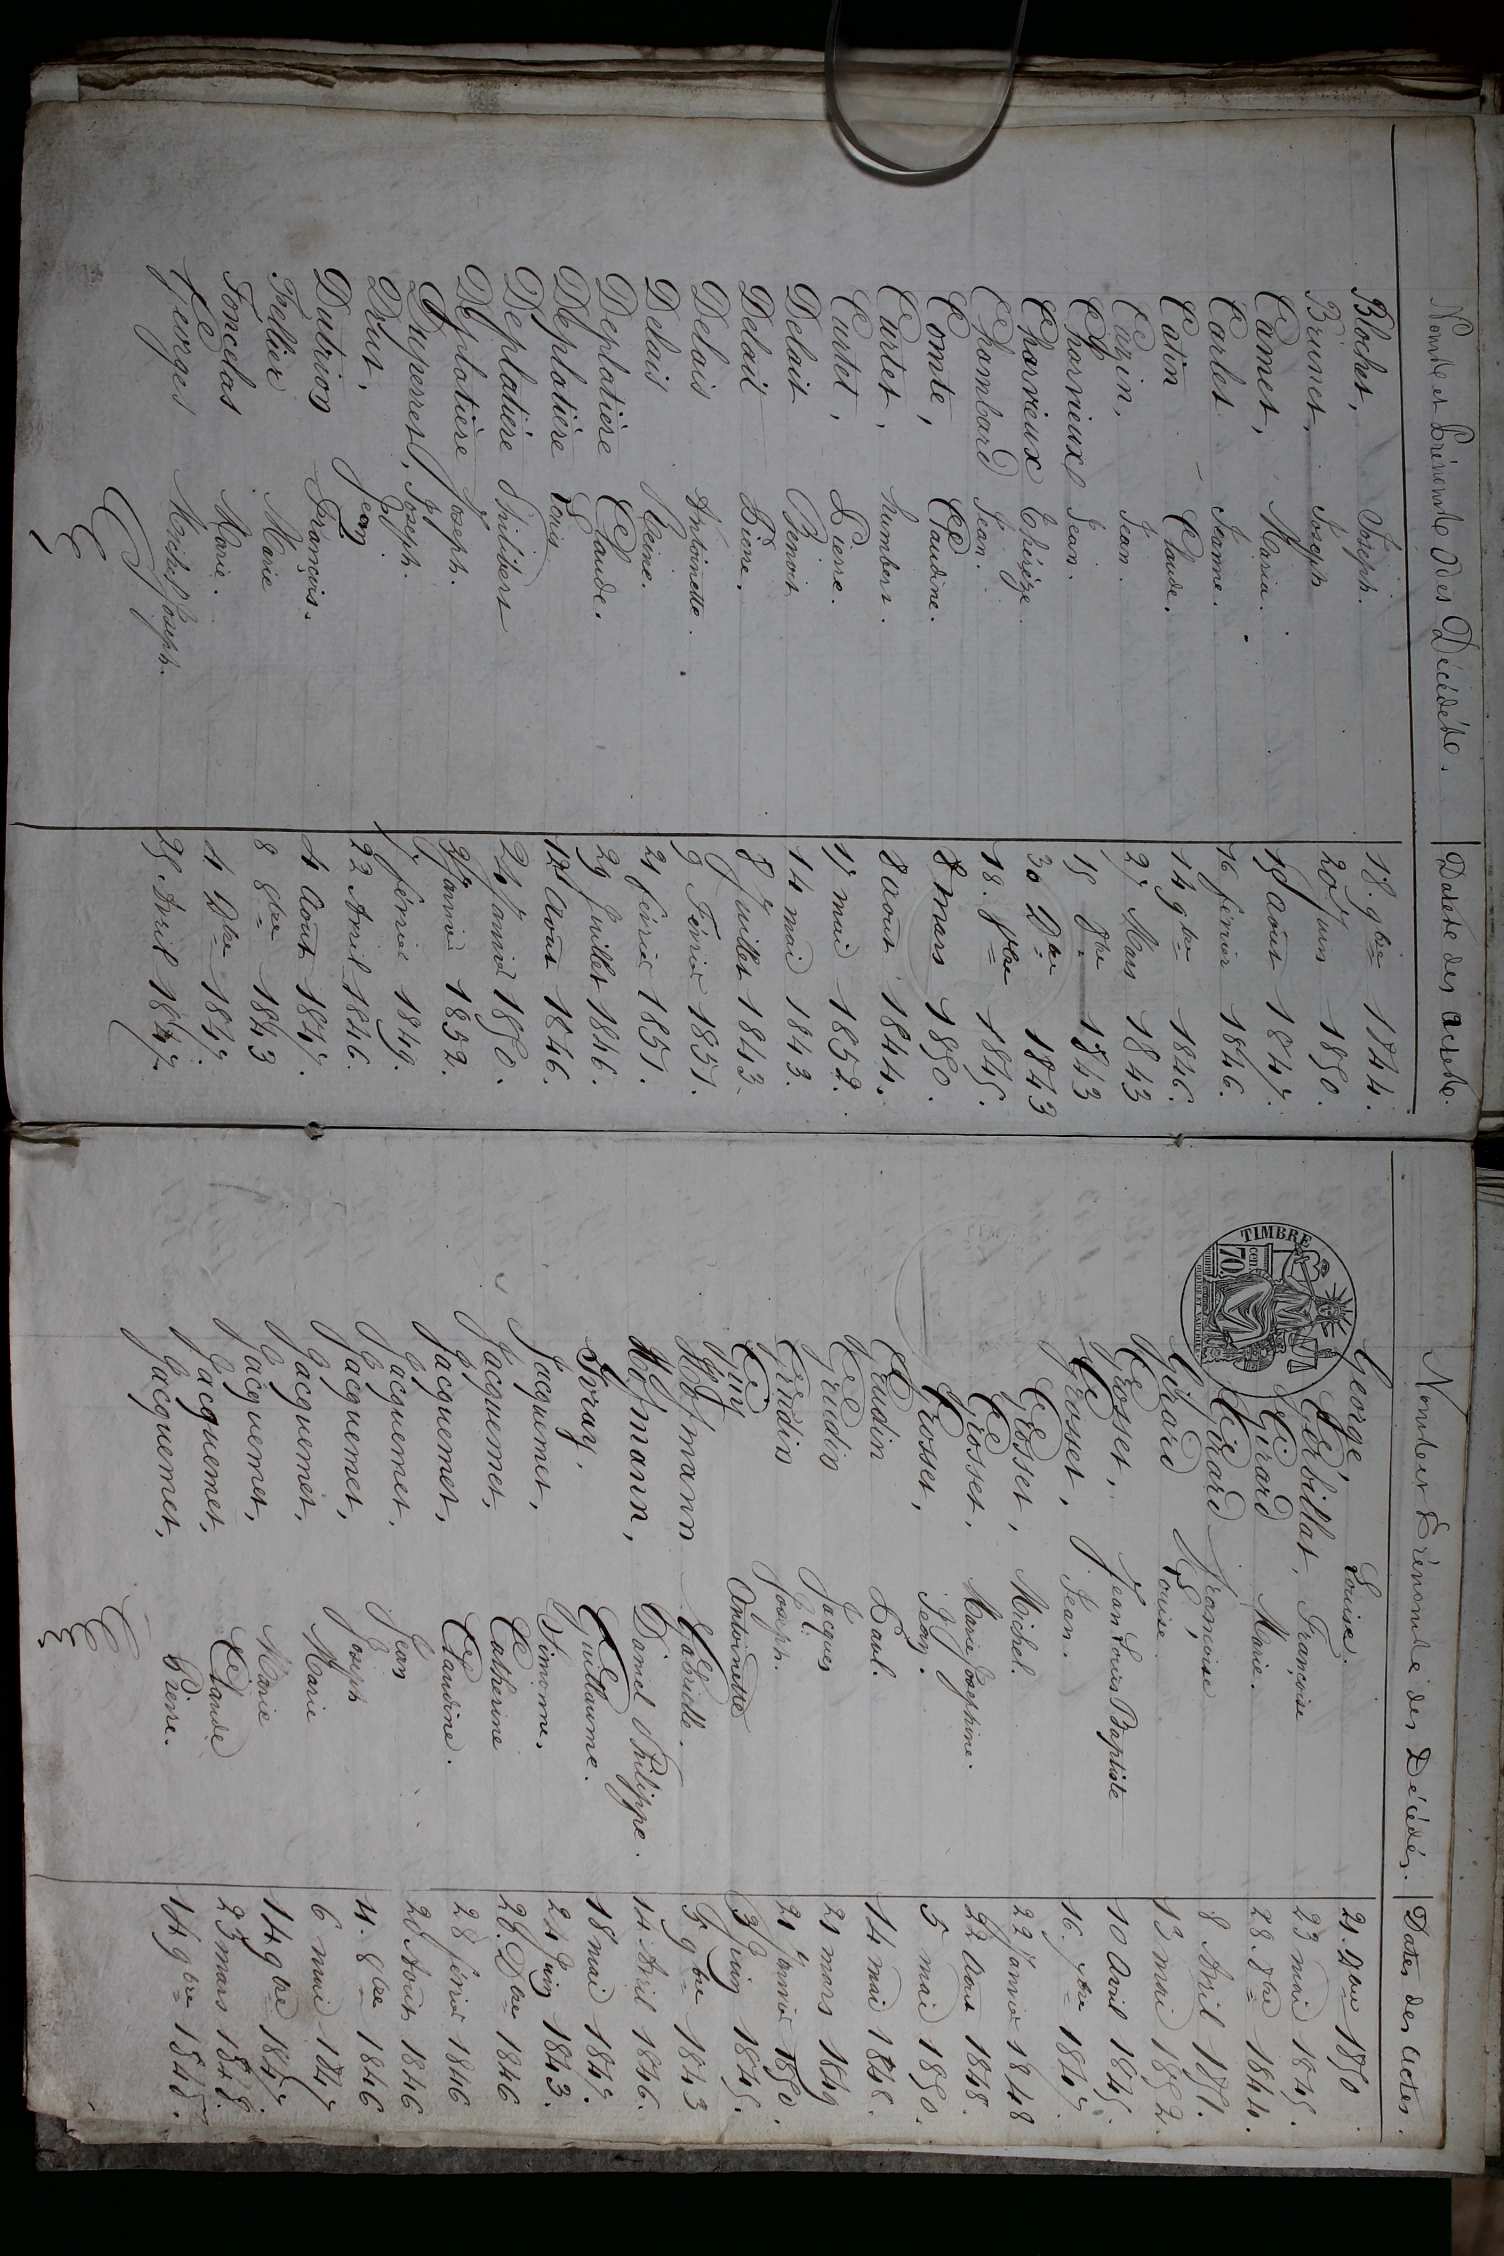 Noms et Prénoms des Décédés. Dates des actes.
Blochet, Joseph. 18. 9bre 1844.
Brunet, Joseph 20 Juin 1850.
Camet, Maria. 15 Août 1847.
Carlet Jeanne. 16 février 1846.
Catin Claude. 14 9bre 1846.
Cazin, Jean. 27 Mars 1843
Charvieux Jean. 15 1843
Charvieux Thérèze 30 Dbre 1843
Chambard Jean. 18. 1845.
Comte, Claudine. 8 mars 1850.
Curtet, humbert. 8 août 1844.
Curtet, Pierre. 17 mai 1852.
Delait Benoit 14 mai 1843.
Delait Pierre. 8 Juillet 1843.
Delais Antoinette. 9 Février 1851.
Delais Reine. 21 février 1851.
Deplatière Claude. 29 Juillet 1846.
Deplatière Louis 12 Août 1846.
Deplatière Philibert 24 Janvier 1850.
Deplatière Joseph. Janvier 1852.
Duperret, Joseph. 7. février 1849.
Drut, Jean 22 Avril 1846.
Dutrion François. 4 Août 1847.
Fellier Marie 8 8bre 1843
Foncelas Marie. 4 Dbre 1847.
Georges Michel Joseph. 25. Avril 1847.
Noms et Prénoms des Décédés. Dates des actes.
TIMBRE
70.
cen
George, Louise. 21. 1850.
Gerbillat, Françoise 23 mai 1845.
Girard Marie. 28. 1844.
Girard Françoise 8 Avril 1851.
Girard Louise 13 mai 1852.
Grosset, Jean Louis Baptiste 10 Avril 1845.
Grosset, Jean. 16. 1847.
Grosset, Michel. 22 Janvier 1848
Grosset, Marie Josephine. 22 Août 1848.
Grosset, Jean. 5 mai 1850.
Grudin Paul. 14 mai 1848.
Grudin Jacques 21 mars 1849
Grudin Joseph. 21 Janvier 1850.
Guy Antoinette 3 Juin 1845.
Hofmann Gabrielle. 5 9bre 1843
Hofmann, Daniel Philippe. 14. Avril 1846.
Ivray, Guillaume. 18 mai 1847.
Jacquemet, Simonne. 24 Juin 1843.
Jacquemet, Catherine 26. Dbre 1846
Jacquemet, Claudine. 28 février 1846
Jacquemet, Jean 20 Août 1846
Jacquemet, Joseph 4. 8bre 1846
Jacquemet, Marie 6 mai 1847
Jacquemet, Marie 14 9bre 1847.
Jacquemet, Claude 23 mars 1848.
Jacquemet, Pierre. 14 9bre 1848.